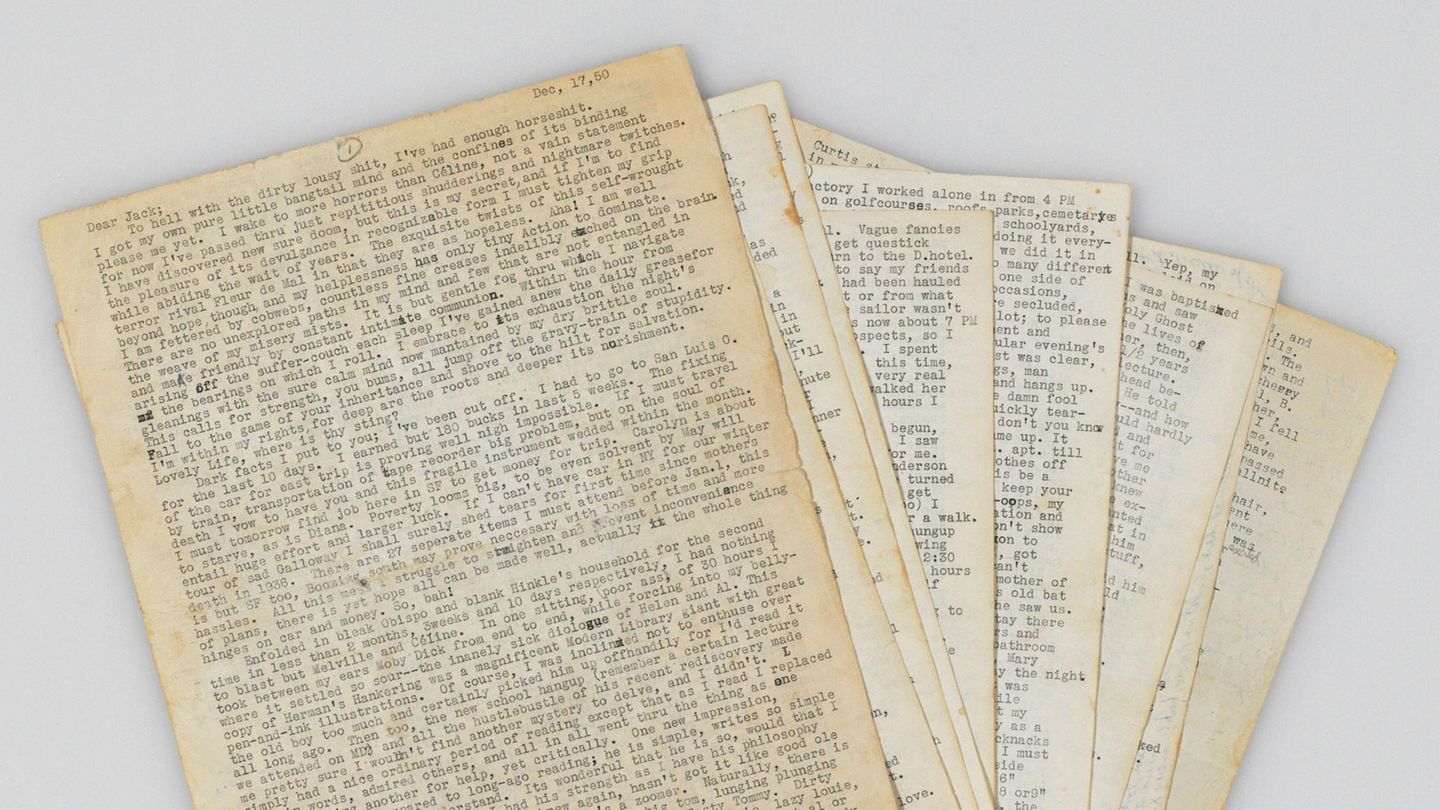 Dec, 17,50
1
Dear Jack;
To hell with the dirty lousy shit, I've had enough horseshit.
I got my own pure little bangtail mind and the confines of its binding
please me yet. I wake to more horrors than Céline, not a vain statement
for now I've passed thru just repititious shudderings and nightmare twitches.
I have discovered new sure doom, but this is my secret,and if I'm to find
the pleasure of its divulgance in recognizable form I must tighten my grip
while abiding the wait of years. The exquisite twists of this self-wrought
terror rival Fleur de Mal in that they are as hopeless. Aha! I am well
beyond hope, though and my helplessness has only tiny Action to dominate.
I am fettered by cobwebs, countless fine creases indelibly etched on the brain.
There are no unexplored paths in my mind and few that are not entangled in
the weave of my misery mists. It is but gentle fog thru which I navigate
and make friendly by constant intimate communion. Within the hour from
arising off the suffer-couch each sleep I've gained anew the daily greasefor
the bearings on which I roll. I embrace to its exhaustion the night's
gleanings with the sure calm mind now mantained by my dry brittle soul.
This calls for strength, you bums, all jump off the gravy-train of stupidity.
Fall to the game of your inheritance and shove to the hilt for salvation.
I'm within my rights,for deep are the roots and deeper its norishment.
Lovely Life, where is thy sting?
Dark facts I put to you; I've been cut off. I had to go to San Luis O.
for the last 10 days. I earned but 130 bucks in last 5 weeks. The fixing
of the car for east trip is proving well nigh impossible. If I must travel
by train, transportation of tape recorder big problem, but on the soul of
death I vow to have you and this fragile instrument wedded within the month.
I must tomorrow find job here in SF to get money for trip. Carolyn is about
to starve, as is Diana. Poverty looms big, to be even solvent by May will
entail huge effort and larger luck. If I can't have car in NY for our winter
tour of sad Galloway I shall surely shed tears for first time since mother's
death in 1936. There are 27 seperate items I must attend before Jan.1, this
is but SF too, Boomian south may prove neccesary with loss of time and more
hassles. All this mess I struggle to straighten and prevent inconvenience
of plans, there is yet hope all can be made well, actually it the whole thing
hinges on car and money. So, bah!
Enfolded in bleak Obispo and blank Hinkle's household for the second
time in less than 2 months, 3weeks and 10 days respectively, I had nothing
to blast but Melville and Céline. In one sitting, poor ass, of 30 hours I
took between my ears Moby Dick from end to end, while forcing into my belly-
where it settled so sour---the inanely sick dialogue of Helen and Al. This
copy of Herman's Hankering was a magnificent Modern Library giant with great
pen-and-ink illustrations. Of course, I was inclined not to enthuse over
the old boy too much and certainly picked him up offhandily for I'd read it
all long ago. Then too, the new school hangup (remember a certain lecture
attended on MD? and all the hustlebustle of his recent rediscovery made
me pretty sure I wouldn't find another mystery to delve, and I didn't. I
simply had a nice ordinary period of reading except that as I read I replaced
words, admired others, and all in all went thru the thing as one
another for help, yet critically. One new impression,
compared to long-ago reading; he is simple, writes so simple
understand. Its wonderful that he is so, would that I
had his strength as I have his philosophy
now again, hasn't got it like good ole
a zoomer. Naturally, there is
big tom, lunging plunging
Tommy. Dirty
lazy louie,
or
Curtis
actory I worked alone in from 4 PM
on golfcourses, roofs,parks,cemetaryes
schoolyards,
doing it every-
we did it in
many different
one side of
occasions,
secluded,
lot; to please
ment and
ular evening's
st was clear,
gs, man
and hangs up.
damn fool
uickly tear-
don't you know
me up. It
apt. till
othes off
is be a
keep your
-oops, my
ation and
on't show
on to
got
an't
mother of
old bat
he saw us.
tay there
rs and
bathroom
Mary
y the night
was
ile
my
as a
cknacks
I must
side
6"
8 or9"
the
l. Vague fancies
get questick
rn to the D.hotel.
to say my friends
had been hauled
t or from what
sailor wasn't
s now about 7 PM
ospects, so I
I spent
this time,
very real
walked her
hours I
begun,
I saw
for me.
nderson
turned
get
oo) I
r a walk.
hungup
wing
2:30
hours
to
ll. Yep, my
I was baptisxed
and saw
oly Ghost
the lives of
her, then,
1/2 years
lecture.
head be-
He told
--and how
uld hardly
and
t for
ve me
other
knew
ex-
unted
at in
him
tuff,
d him
ld
ked
ils.
The
wn and
cheery
l, B.
her.
I fell
me,
have
passed
allnite
hair.
ent
here
was
as
ded
a
in
out
k-
I'll
nute
nner
love.